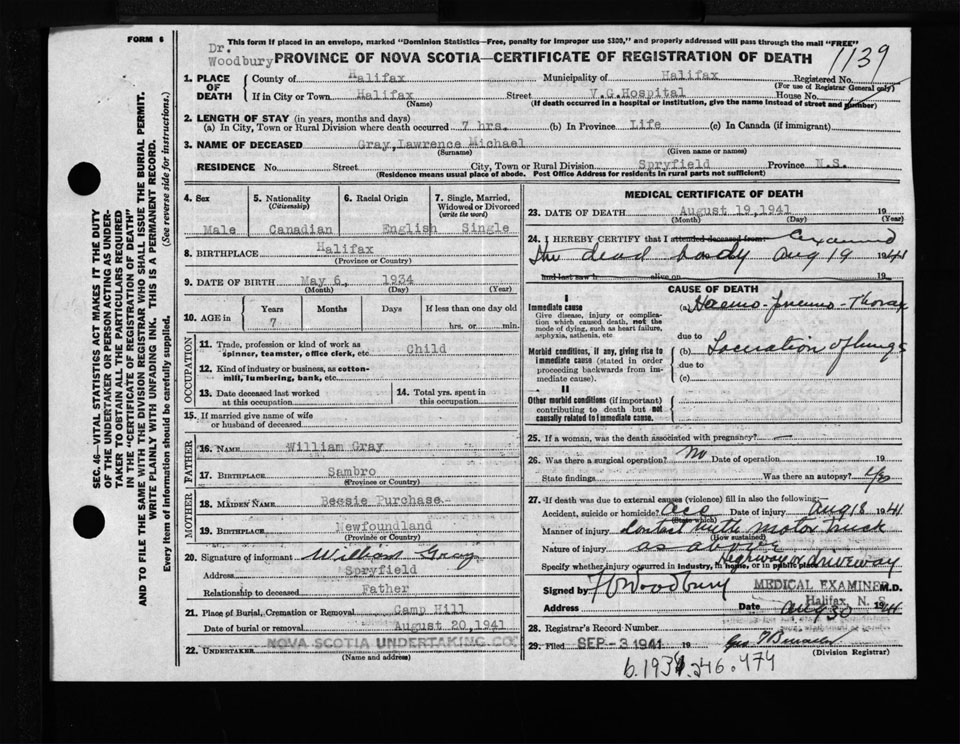 FORM 6
This form if placed in an envelope, marked "Dominion Statistics—Free, penalty for improper use $300," and properly addressed will pass through the mail "FREE"
Dr. Woodbury
PROVINCE OF NOVA SCOTIA—CERTIFICATE OF REGISTRATION OF DEATH
1139
1. PLACE OF DEATH
County of Halifax Municipality of Halifax Registered No.
(For use of Registrar General only)
If in City or Town Halifax Street V.G.Hospital House No.
(Name) (If death occurred in a hospital or institution, give the name instead of street and number)
2. LENGTH OF STAY (in years, months and days)
(a) In City, Town or Rural Division where death occurred 7 hrs. (b) In Province Life (c) In Canada (if immigrant)
3. NAME OF DECEASED Gray, Lawrence Michael
(Surname) (Given name or names)
RESIDENCE No. Street City, Town or Rural Division Spryfield Province N.S.
(Residence means usual place of abode. Post Office Address for residents in rural parts not sufficient)
4. Sex Male
5. Nationality (Citizenship) Canadian
6. Racial Origin English
7. Single, Married, Widowed or Divorced (write the word) Single
8. BIRTHPLACE Halifax
(Province or Country)
9. DATE OF BIRTH May 6, 1934
(Month) (Day) (Year)
10. AGE in Years Months Days If less than one day old
7 hrs. or min.
OCCUPATION
11. Trade, profession or kind of work as spinner, teamster, office clerk, etc Child
12. Kind of industry or business, as cotton-mill, lumbering, bank, etc.
13. Date deceased last worked at this occupation
14. Total yrs. spent in this occupation
15. If married give name of wife or husband of deceased
FATHER
16. NAME William Gray
17. BIRTHPLACE Sambro
(Province or Country)
MOTHER
18. MAIDEN NAME Bessie Purchase
19. BIRTHPLACE Newfoundland
(Province or Country)
20. Signature of informant William Gray
Address Spryfield
Relationship to deceased Father
21. Place of Burial, Cremation or Removal Camp Hill
Date of burial or removal August 20,1941
22. UNDERTAKER NOVA SCOTIA UNDERTAKING CO.
(Name and address)
MEDICAL CERTIFICATE OF DEATH
23. DATE OF DEATH August 19,1941 19
(Month) (Day) (Year)
24. I HEREBY CERTIFY that I attended deceased from: Examined
the dead body Aug 19 1941
and last saw h alive on 19
CAUSE OF DEATH
I
Immediate cause
Give disease, injury or complication which caused death, not the mode of dying, such as heart failure, asphyxia, asthenia, etc.
(a) Haemo-pneumo-Thorax
due to
Morbid conditions, if any, giving rise to immediate cause (stated in order proceeding backwards from immediate cause).
(b) Laceration of lungs
due to
(c)
II
Other morbid conditions (if important) contributing to death but not causally related to immediate cause.
25. If a woman, was the death associated with pregnancy? —
26. Was there a surgical operation? No Date of operation 19
State findings Was there an autopsy? Yes
27. If death was due to external causes (violence) fill in also the following:—
Accident, suicide or homicide? acc Date of injury Aug 18 1941
(State which)
Manner of injury Contact with motor truck
(How sustained)
Nature of injury as above
Highway or driveway
Specify whether injury occurred in industry, in home, or in public place
Signed by Woodbury MEDICAL EXAMINER M.D.
Halifax, N. S.
Address Date Aug 30 1941
28. Registrar's Record Number
29. Filed SEP - 3 1941 19
(Division Registrar)
SEC. 46—VITAL STATISTICS ACT MAKES IT THE DUTY
OF THE UNDERTAKER OR PERSON ACTING AS UNDER-
TAKER TO OBTAIN ALL THE PARTICULARS REQUIRED
IN THE "CERTIFICATE OF REGISTRATION OF DEATH"
AND TO FILE THE SAME WITH THE DIVISION REGISTRAR WHO SHALL ISSUE THE BURIAL PERMIT.
WRITE PLAINLY WITH UNFADING INK. THIS IS A PERMANENT RECORD.
Every item of information should be carefully supplied. (See reverse side for instructions.)